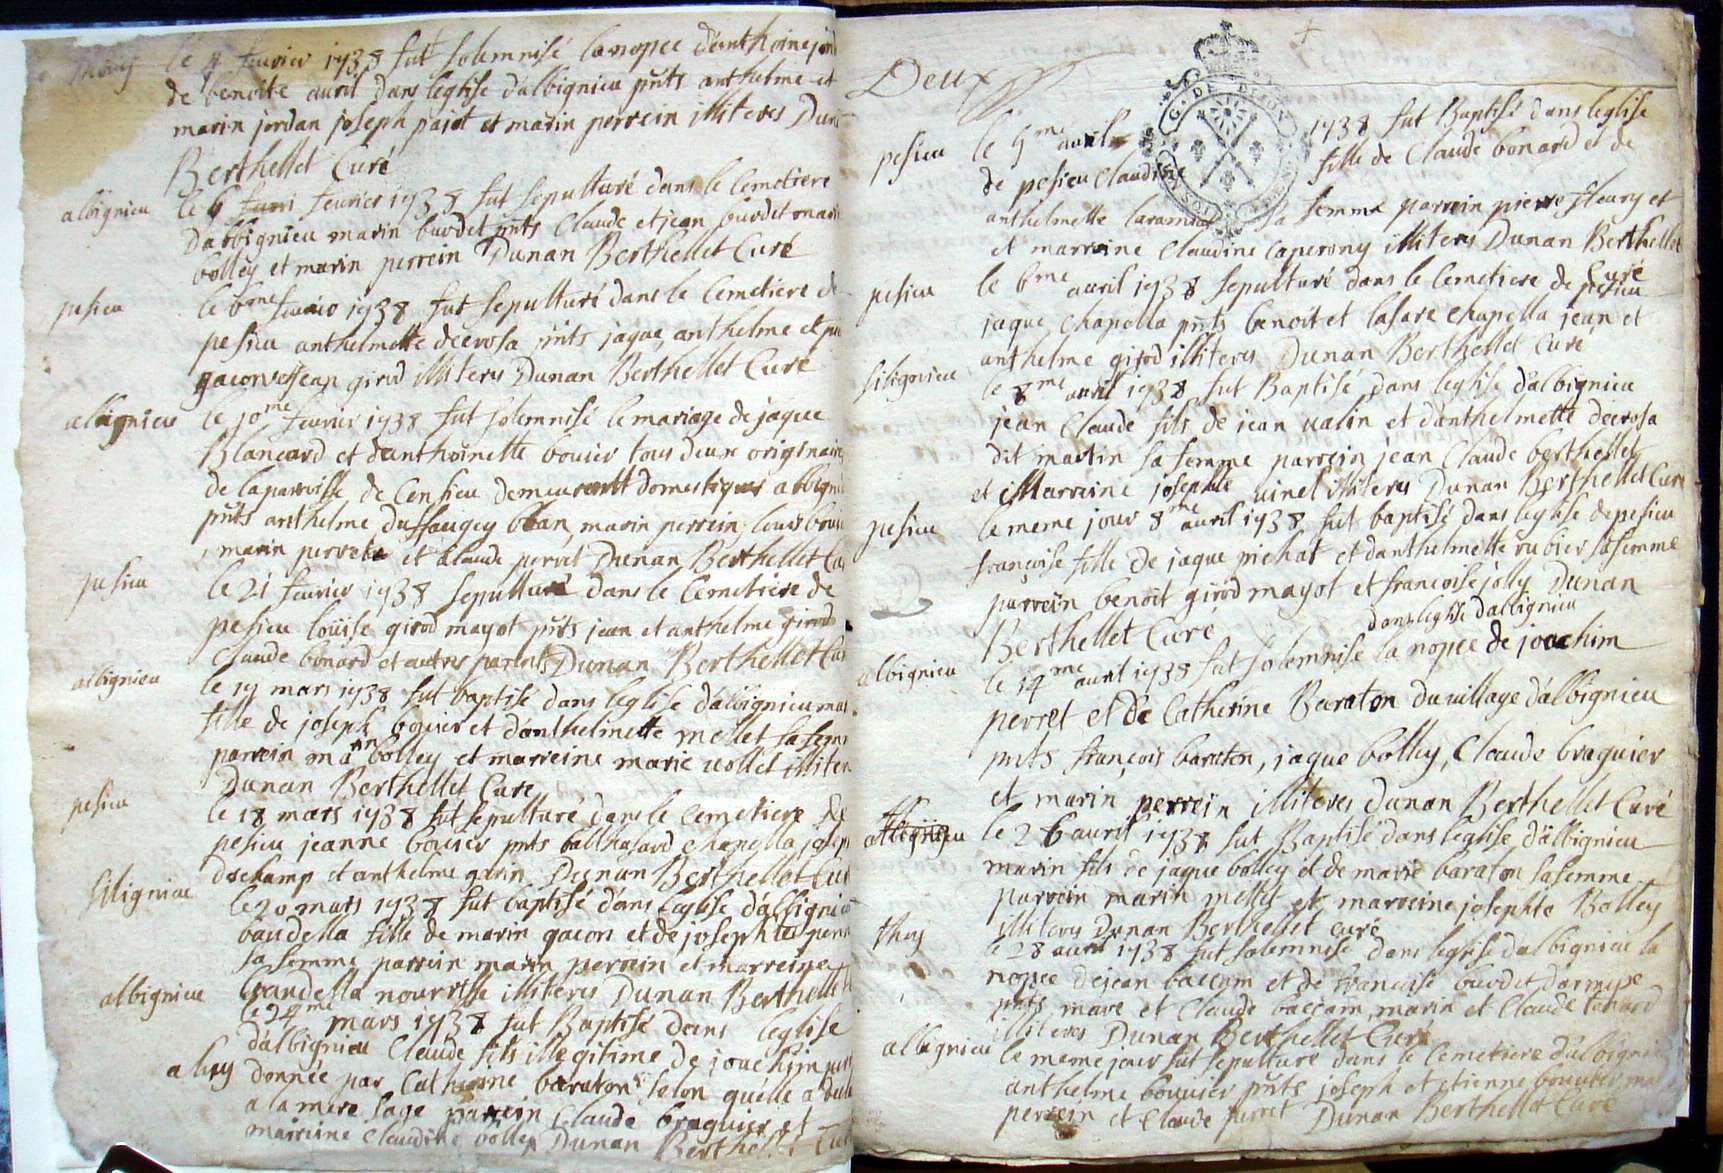 le 4 feuvier 1738 fut solemnisé la nopce d'anthoine
de benoite auril dans leglise d'albignieu pnts anthelme et
marin jordan joseph pajot et marin perrein illiteres Dun
Berthellet Curé
albignieu le 6 feuvrier 1738 fut sepulturé dans le Cemetiere
d'albignieu marin burdet pnts Claude et jean burdet marin
bolley et marin perrein Dunan Berthellet Curé
pesieu le 6me 1738 fut sepulturé dans le Cemetiere de
pesieu anthelmette decrosa pnts jaque, anthelme et
gacon et jean girod illiteres Dunan Berthellet Curé
albignieu le 10me feuvrier 1738 fut solemnisé le mariage de jaque
Blancard et d'anthoinette bouier tous deux originaires
de la parroisse de Censieu demeurantt domestiques a albignieu
pnts anthelme dussaugey marin perrein, louis
marin perret et Claude perret Dunan Berthellet Cu
pesieu le 21 feuvrier 1738 sepulturé dans le Cemetiere de
pesieu loüise girod mayot pnts jean et anthelme girod
Claude bonard et autres parents Dunan Berthellet Cu
albignieu le 17 mars 1738 fut baptisé dans leglise d'albignieu mar
fille de joseph bouier et d'anthelmette mellet sa femm
parrein marin bolley et marreine marie uollet illiter
Dunan Berthellet Cure
pesieu le 18 mars 1738 fut sepulturé dans le Cemetiere de
pesieu jeanne bouier pnts balthasard Chapella josep
dechamp et anthelme garin Dunan Berthellet Cur
silignieu le 20 mars 1738 fut baptisé dans leglise d'albignieu
baudella fille de marin gacon et de josephte perr
sa femme parrein marin perrein et marreine
baudella nourrisse illiteres Dunan Berthellet
albignieu le 24me mars 1738 fut Baptisé dans leglise
d'albignieu Claude fils illegitime de joachim perr
donnée par Catherine baraton selon qu'elle a decla
a la mere sage parrein Claude braguier et
marreine Claudine bolley Dunan Berthellet Cur
Deux
G. DE DIJON
pesieu le 5me auril 1738 fut Baptisé dans leglise
de pesieu Claudine fille de Claude bonard et de
anthelmette sa femme parrein pierre fleury et
et marreine Claudine caperony illiteres Dunan Berthellet
Curé
pesieu le 6me auril 1738 sepulturé dans le Cemetiere de pesieu
jaque Chapella pnts benoit et lasare Chapella jean et
anthelme girod illiteres Dunan Berthellet Curé
silignieu le 8me auril 1738 fut Baptisé dans leglise d'albignieu
jean Claude fils de jean ualin et d'anthelmette decrosa
dit martin sa femme parrein jean Claude berthellet
et Marreine josephte uinel illiteres Dunan Berthellet Cure
pesieu le meme jour 8me auril 1738 fut baptisé dans leglise de pesieu
françoise fille de jaque michat et d'anthelmette rubier sa femme
parrein benoit girod mayot et francoise jolly Dunan
Berthellet Curé
dans leglise d'albignieu
albignieu le 14me auril 1738 fut solemnisé la nopce de joachim
perret et de Catherine Baraton du uillage d'albignieu
pnts françois baraton, jaque bolley, Claude braguier
et marin perrein illiteres dunan Berthellet Curé
albignieu le 26 auril 1738 fut Baptisé dans leglise d'albignieu
marin fils de jaque bolley et de marie baraton sa femme
parrein marin mellet et marreine josephte Bolley
illiteres Dunan Berthellet curé
thoy le 28 auril 1738 fut solemnisé dans leglise d'albignieu la
nopce de jean baccam et de francoise burdet d'armise
pnts marc et Claude baccam, marin et Claude
illiteres Dunan Berthellet Curé
albignieu le meme jour fut sepulturé dans le Cemetiere d'albignieu
anthelme bouuier pnts joseph et etienne bouuier, ma
perrein et Claude perret Dunan Berthellet Curé